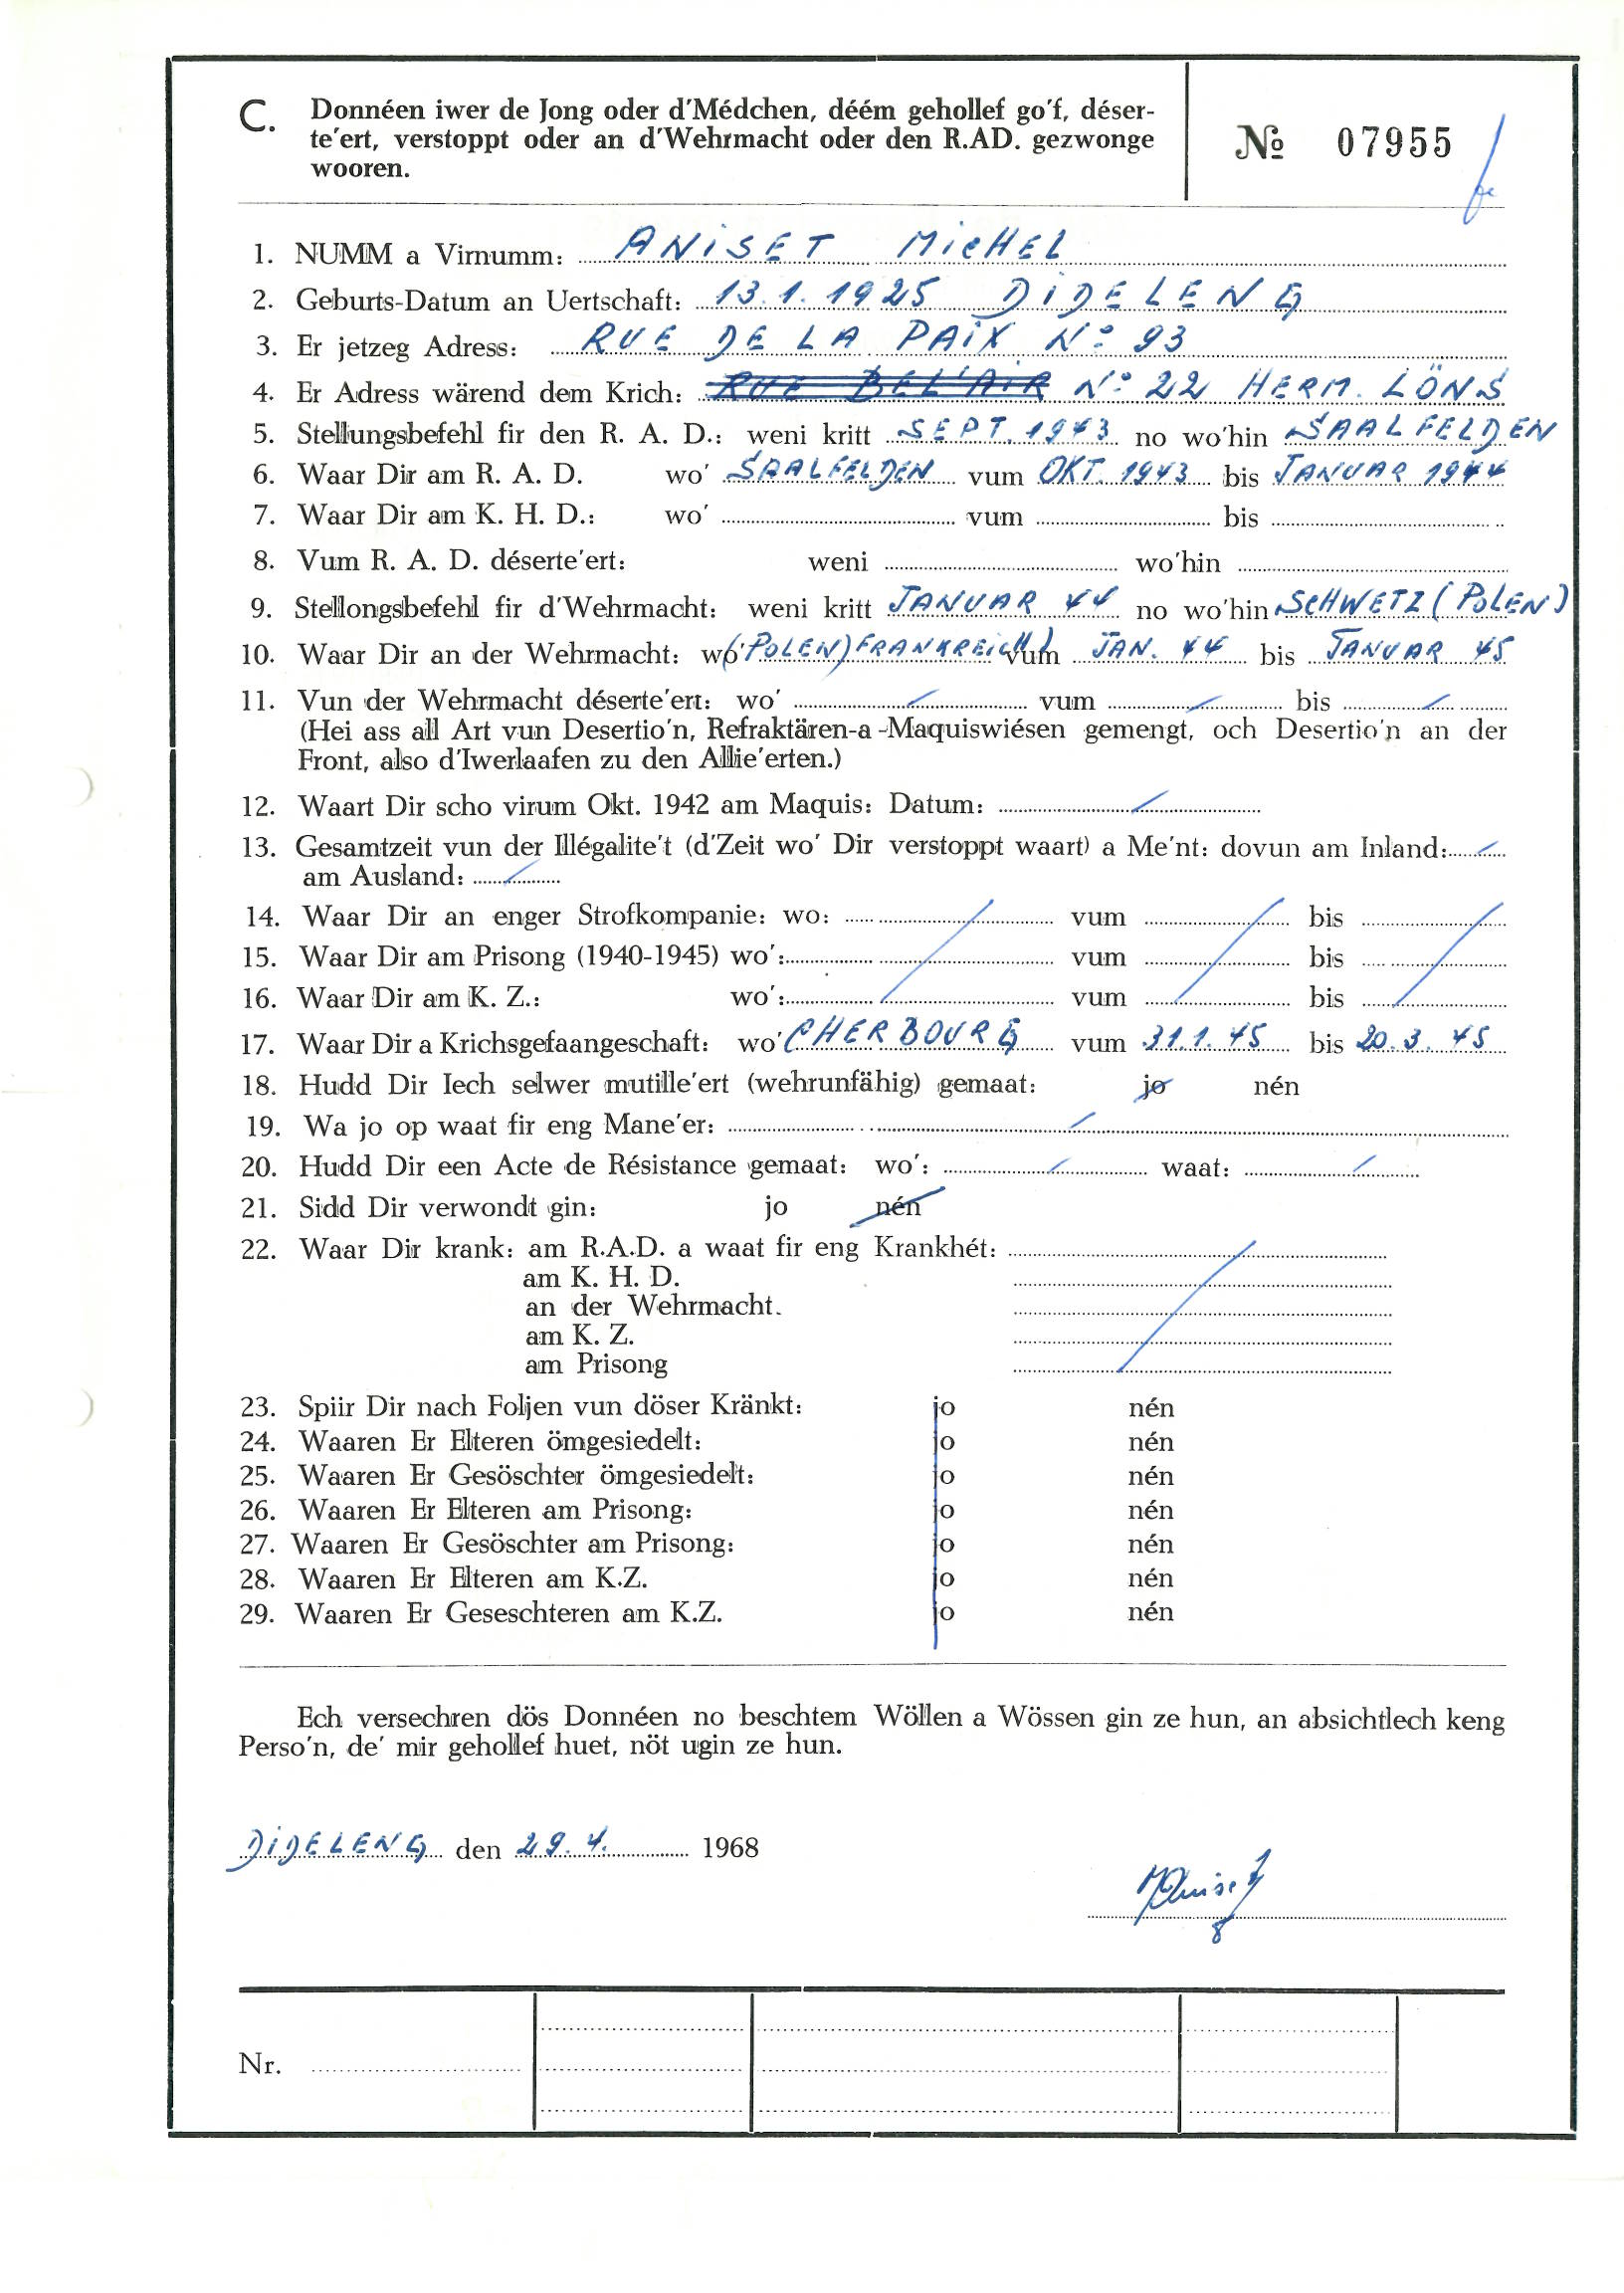 C. Donnéen iwer de Jong oder d'Médchen, déém gehollef go'f, déser-
te'ert, verstoppt oder an d'Wehrmacht oder den R.AD. gezwonge
wooren.
№ 07955
1. NUMM a Virnumm: ANISET MICHEL
2. Geburts-Datum an Uertschaft: 13.1.1925 DIDELENG
3. Er jetzeg Adress: RUE DE LA PAIX N° 93
4. Er Adress wärend dem Krich: RUE BEL'AIR N° 22 HERM. LÖNS
5. Stellungsbefehl fir den R. A. D.: weni kritt SEPT. 1943 no wo'hin SAALFELDEN
6. Waar Dir am R. A. D. wo' SAALFELDEN vum OKT. 1943 bis JANUAR 1944
7. Waar Dir am K. H. D.: wo' vum bis
8. Vum R. A. D. déserte'ert: weni wo'hin
9. Stellongsbefehl fir d'Wehrmacht: weni kritt JANUAR 44 no wo'hin SCHWETZ (POLEN)
10. Waar Dir an der Wehrmacht: wo' (POLEN) FRANKREICH) vum JAN. 44 bis JANUAR 45
11. Vun der Wehrmacht déserte'ert: wo' vum bis
(Hei ass all Art vun Desertio'n, Refraktären-a-Maquiswiésen gemengt, och Desertio'n an der
Front, also d'Iwerlaafen zu den Allie'erten.)
12. Waart Dir scho virum Okt. 1942 am Maquis: Datum:
13. Gesamtzeit vun der Illégalite't (d'Zeit wo' Dir verstoppt waart) a Me'nt: dovun am Inland:
am Ausland:
14. Waar Dir an enger Strofkompanie: wo: vum bis
15. Waar Dir am Prisong (1940-1945) wo': vum bis
16. Waar Dir am K. Z.: wo': vum bis
17. Waar Dir a Krichsgefaangeschaft: wo' CHERBOURG vum 31.1.45 bis 20.3.45
18. Hudd Dir Iech selwer mutille'ert (wehrunfähig) gemaat: jo nén
19. Wa jo op waat fir eng Mane'er:
20. Hudd Dir een Acte de Résistance gemaat: wo': waat:
21. Sidd Dir verwondt gin: jo nén
22. Waar Dir krank: am R.A.D. a waat fir eng Krankhét:
am K. H. D.
an der Wehrmacht.
am K. Z.
am Prisong
23. Spiir Dir nach Foljen vun döser Kränkt: jo nén
24. Waaren Er Elteren ömgesiedelt: jo nén
25. Waaren Er Gesöschter ömgesiedelt: jo nén
26. Waaren Er Elteren am Prisong: jo nén
27. Waaren Er Gesöschter am Prisong: jo nén
28. Waaren Er Elteren am K.Z. jo nén
29. Waaren Er Geseschteren am K.Z. jo nén
Ech versechren dös Donnéen no beschtem Wöllen a Wössen gin ze hun, an absichtlech keng
Perso'n, de' mir gehollef huet, nöt ugin ze hun.
DIDELENG den 29.4. 1968
MAniset
Nr.